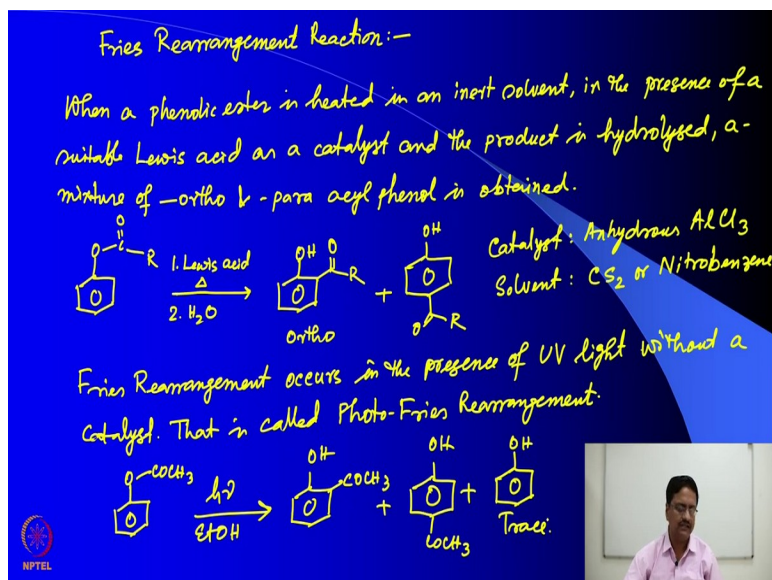 Fries Rearrangement Reaction:—
When a phenolic ester is heated in an inert solvent, in the presence of a
suitable Lewis acid as a catalyst and the product is hydrolysed, a-
mixture of -ortho & -para acyl phenol is obtained.
O
O-C-R
1. Lewis acid
Δ
2. H2O
OH O
R
Ortho
+
OH
O R
Catalyst: Anhydrous AlCl3
Solvent: CS2 or Nitrobenzene
Fries Rearrangement occurs in the presence of UV light without a
catalyst. That is called Photo-Fries Rearrangement.
O-COCH3
hν
EtOH
OH
COCH3
+
OH
COCH3
+
OH
Trace.
NPTEL